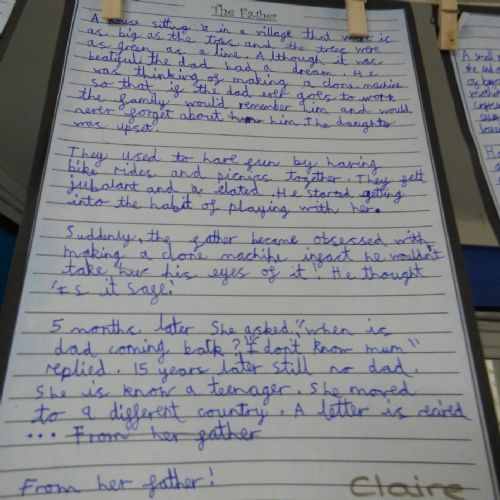 The Father
A house sitting in a village that is
as big as the trees and the trees were
as green as a lime. Although it was
beatiful the dad had a dream. He
was thinking of making a clone machine
so that if the dad ever goes to work
the family would remember him and would
never forget about him. The daughter
was upset.
They used to have fun by having
bike rides and picnics together. They felt
jubalant and elated. He started getting
into the habit of playing with her.
Suddenly, the father became obsessed with
making a clone machine infact he wouldn't
take his eyes of it! He thought
'Is it safe!
5 months later she asked, "when is
dad coming back? "I don't know mum"
replied. 15 years later still no dad.
She is know a teenager. She moved
to a different country. A letter is
... From her father
From her father!
Claire
A small